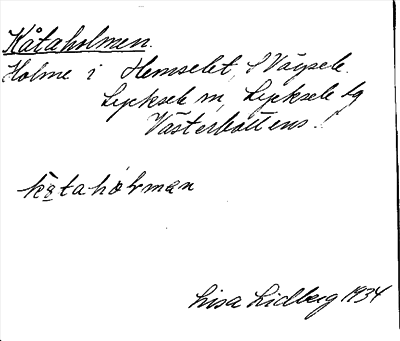 Kåtaholmen.
Holme i Hemselet, S Vägsele.
Lycksele sn, Lycksele lg
Västerbottens l.
kåtahȯlmαn
Lisa Lidberg 1934